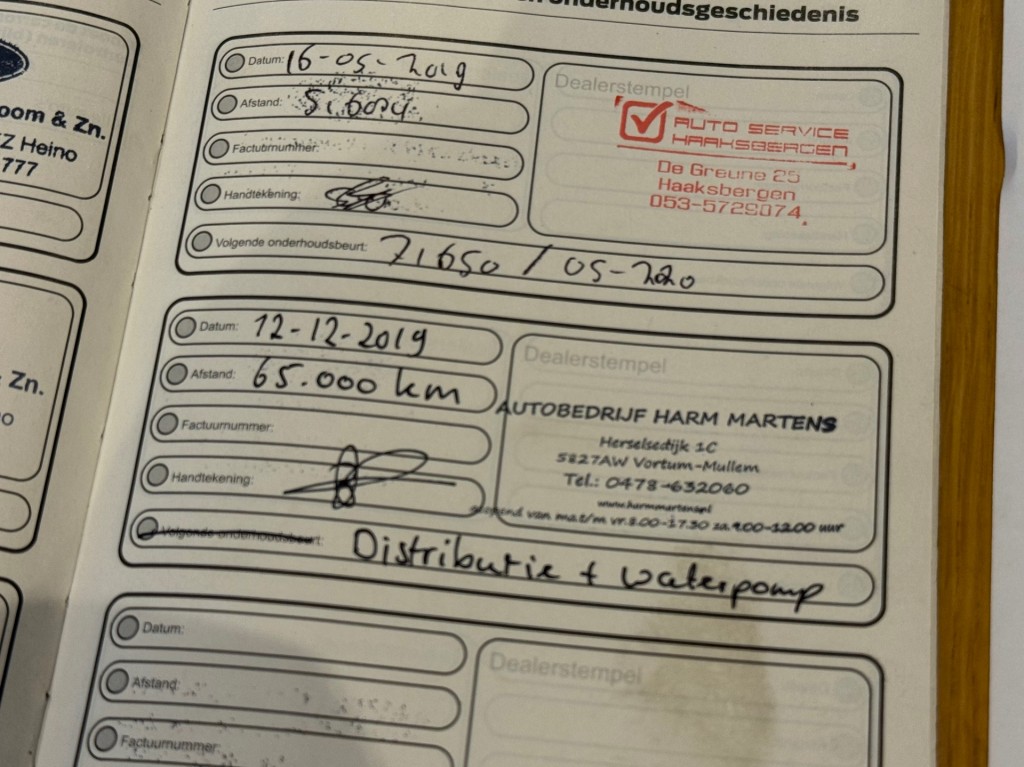 onderhoudsgeschiedenis
oom & Zn.
Z Heino
777
Zn.
Datum: 16-05-2019
Afstand:
Factuurnummer:
Handtekening:
Volgende onderhoudsbeurt: 71650 / 05-2020
Dealerstempel
AUTO SERVICE
HAAKSBERGEN
De Greune 25
Haaksbergen
053-5729074
Datum: 12-12-2019
Afstand: 65.000 km
Factuurnummer:
Handtekening:
Volgende onderhoudsbeurt: Distributie + waterpomp
Dealerstempel
AUTOBEDRIJF HARM MARTENS
Herselsedijk 1C
5827AW Vortum-Mullem
Tel.: 0478-632060
www.harmmartens.nl
geopend van ma.t/m vr. 8.00-17.30 za. 9.00-12.00 uur
Datum:
Afstand:
Factuurnummer:
Dealerstempel